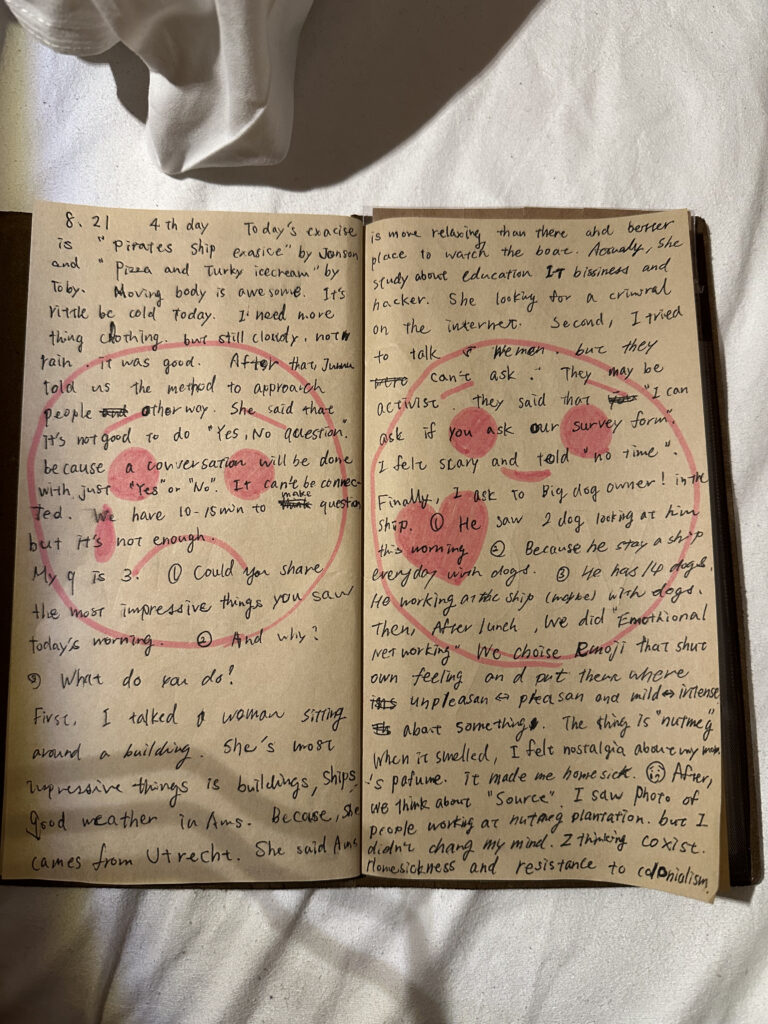 8. 21 4th day Today's exacise
is "Pirates ship exasice" by Janson
and "Pizza and Turky icecream" by
Toby. Moving body is awesome. It's
rittle be cold today. I need more
thing clothing. but still cloudy, not
rain. it was good. After that,
told us the method to approach
people and other way. She said that
it's not good to do "Yes, No question".
because a conversation will be done
with just "Yes" or "No". It can't be connec-
ted. We have 10-15min to think make question
but it's not enough.
My q is 3. ① Could you share
the most impressive things you saw
today's worning. ② And why?
③ What do you do?
First, I talked a woman sitting
around a building. She's most
impressive things is buildings, ships,
good weather in Ams. Becase, she
cames from Utrecht. She said Ams
is more relaxing than there and berter
place to watch the boat. Actually, she
study about education IT bissiness and
hacker. She looking for a criminal
on the internet. Second, I tried
to talk Women. but they
can't ask. They may be
activist. They said that "I can
ask if you ask our survey form".
I felt scary and told "no time".
Finally, I ask to Big dog owner! in the
ship. ① He saw 2 dog looking at him
this worning ② Because he stay a ship
everyday with dogs. ③ He has 14 dogs.
He working at the ship (maybe) with dogs.
Then, After lunch, We did "Emothional
Networking" We choise Emoji that shut
own feeling and put them where
unpleasan ↔ pleasan and mild ↔ intense
about something. The thing is "nutmeg"
When it smelled, I felt nostalgia about my mom
's pafume. it made me homesick. ☹ After,
we think about "Source". I saw photo of
people working at nutmeg plantation. but I
didn't chang my mind. I thinking coxist.
Homesickness and resistance to colonialism.